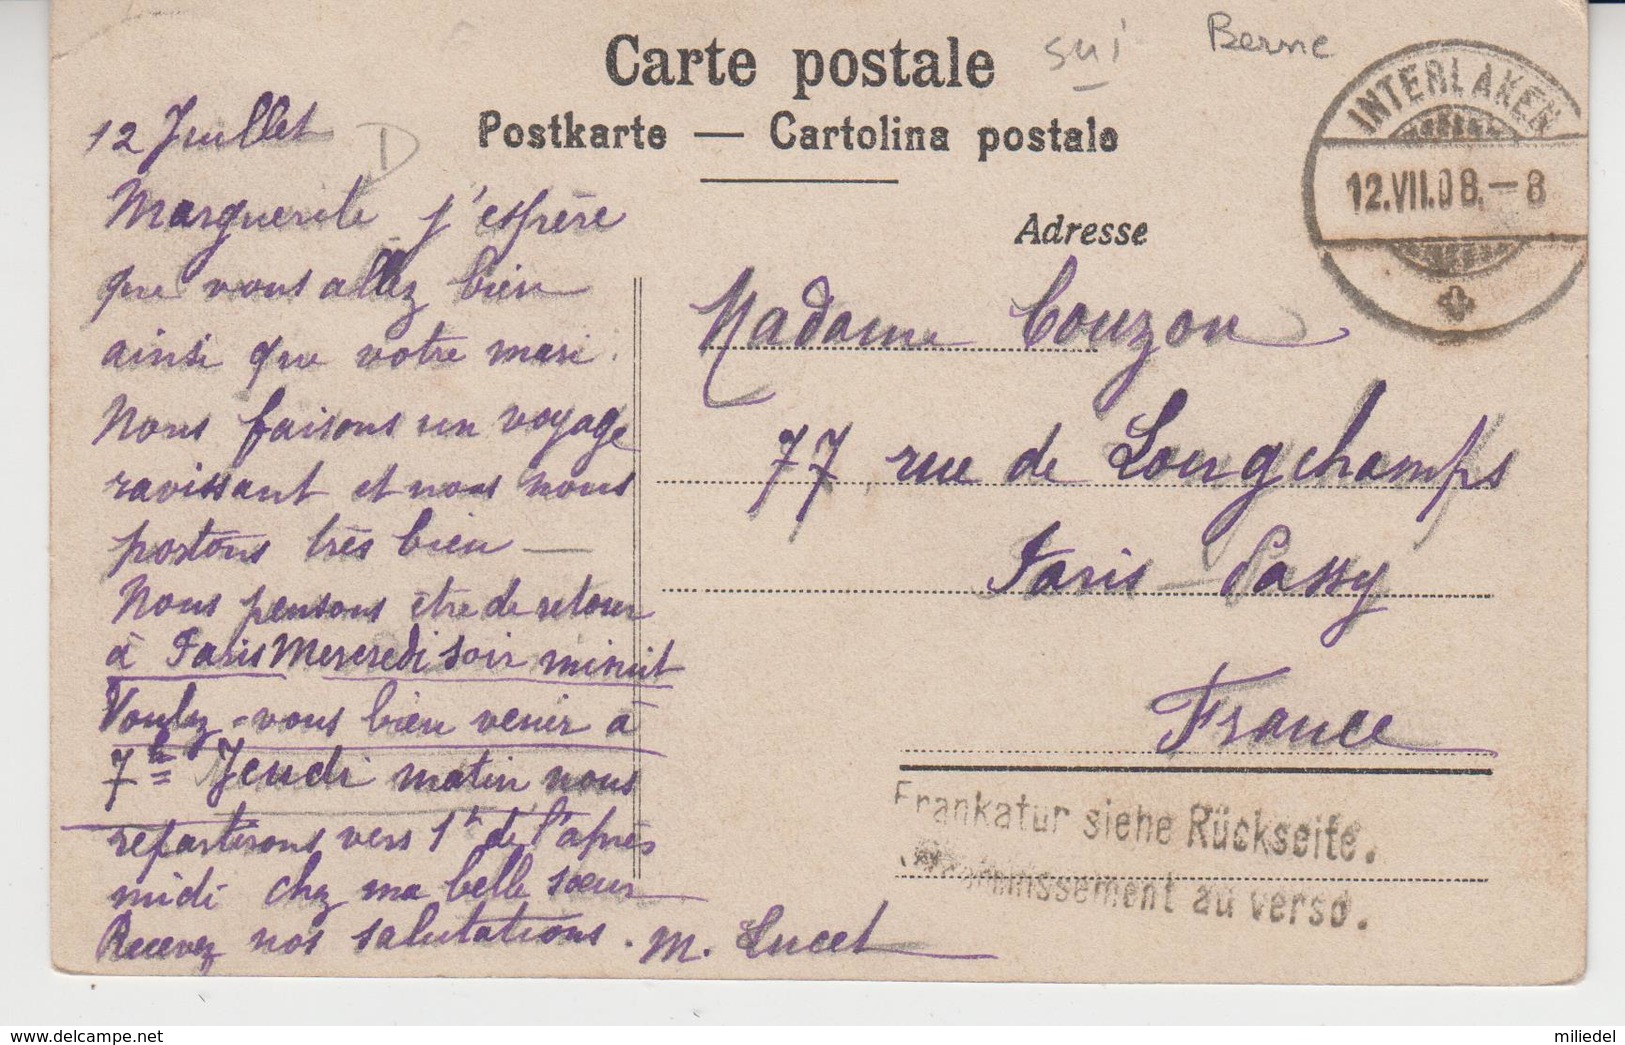 Carte postale
sui
Berne
Postkarte — Cartolina postale
Adresse
INTERLAKEN
12.VII.08.-8
12 Juillet
Marguerite j'espère
que vous allez bien
ainsi que votre mari.
Nous faisons un voyage
ravissant et nous nous
portons très bien —
Nous pensons être de retour
à Paris Mercredi soir minuit
Voulez-vous bien venir à
7h Jeudi matin nous
repartirons vers 1h de l'après
midi chez ma belle sœur
Recevez nos salutations. M. Lucet
Madame Couzon
77 rue de Longchamps
Paris-Passy
France
Frankatur siehe Rückseite.
au verso.
delcampe.net
miliedel